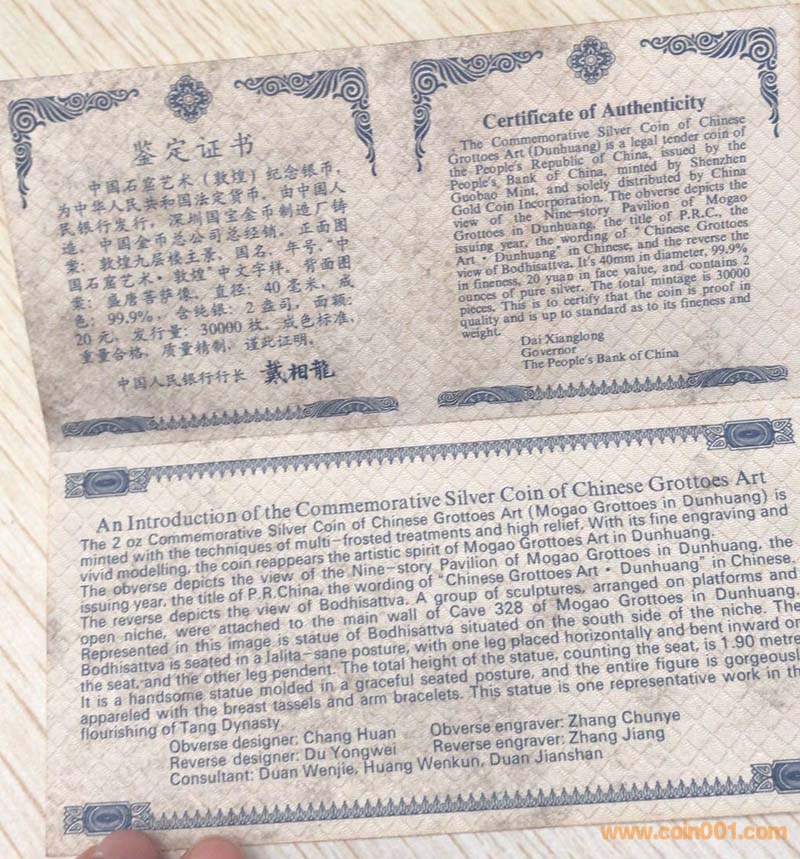 鉴定证书
中国石窟艺术（敦煌）纪念银币，
为中华人民共和国法定货币。由中国人
民银行发行，深圳国宝金币制造厂铸
造，中国金币总公司总经销。正面图
案：敦煌九层楼主景，国名，年号，“中
国石窟艺术·敦煌”中文字样。背面图
案：盛唐菩萨像。直径：40毫米，成
色：99.9%，含纯银：2盎司，面额：
20元，发行量：30000枚。成色标准，
重量合格，质量精制，谨此证明。
中国人民银行行长 戴相龍
Certificate of Authenticity
The Commemorative Silver Coin of Chinese
Grottoes Art (Dunhuang) is a legal tender coin of
the People's Republic of China, issued by the
People's Bank of China, minted by Shenzhen
Guobao Mint, and solely distributed by China
Gold Coin Incorporation. The obverse depicts the
view of the Nine-story Pavilion of Mogao
Grottoes in Dunhuang, the title of P.R.C., the
issuing year, the wording of "Chinese Grottoes
Art · Dunhuang" in Chinese, and the reverse the
view of Bodhisattva. It's 40mm in diameter, 99.9%
in fineness, 20 yuan in face value, and contains 2
ounces of pure silver. The total mintage is 30000
pieces. This is to certify that the coin is proof in
quality and is up to standard as to its fineness and
weight.
Dai Xianglong
Governor
The People's Bank of China
An Introduction of the Commemorative Silver Coin of Chinese Grottoes Art
The 2 oz Commemorative Silver Coin of Chinese Grottoes Art (Mogao Grottoes in Dunhuang) is
minted with the techniques of multi-frosted treatments and high relief. With its fine engraving and
vivid modelling, the coin reappears the artistic spirit of Mogao Grottoes Art in Dunhuang.
The obverse depicts the view of the Nine-story Pavilion of Mogao Grottoes in Dunhuang, the
issuing year, the title of P.R.China, the wording of "Chinese Grottoes Art · Dunhuang" in Chinese.
The reverse depicts the view of Bodhisattva. A group of sculptures, arranged on platforms and
open niche, were attached to the main wall of Cave 328 of Mogao Grottoes in Dunhuang.
Represented in this image is statue of Bodhisattva situated on the south side of the niche. The
Bodhisattva is seated in a lalita-sane posture, with one leg placed horizontally and bent inward on
the seat, and the other leg pendent. The total height of the statue, counting the seat, is 1.90 metre
It is a handsome statue molded in a graceful seated posture, and the entire figure is gorgeousl
appareled with the breast tassels and arm bracelets. This statue is one representative work in th
flourishing of Tang Dynasty.
Obverse designer: Chang Huan Obverse engraver: Zhang Chunye
Reverse designer: Du Yongwei Reverse engraver: Zhang Jiang
Consultant: Duan Wenjie, Huang Wenkun, Duan Jianshan
www.coin001.com